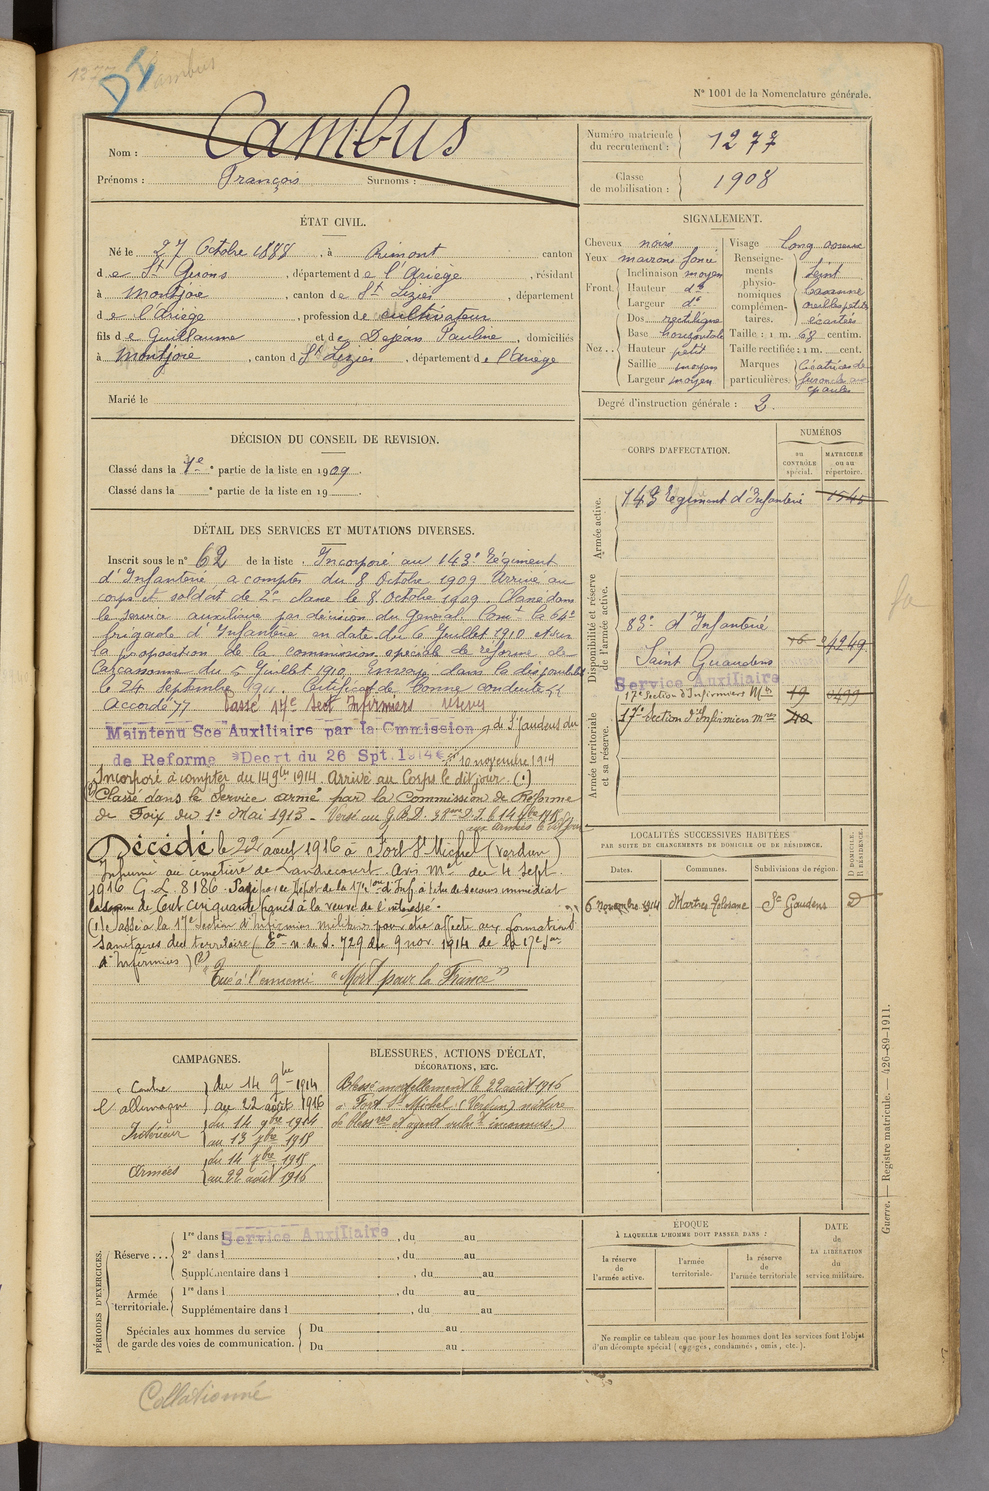 1277 Cambus
N° 1001 de la Nomenclature générale.
Nom : Cambus
Prénoms : François Surnoms :
Numéro matricule du recrutement : 1277
Classe de mobilisation : 1908
ÉTAT CIVIL.
Né le 27 Octobre 1888, à Rimont canton
de St Girons, département de l'Ariège, résidant
à Montjoie, canton de St Lizier, département
de l'Ariège, profession de cultivateur
fils de Guillaume et de Dejean Pauline, domiciliés
à Montjoie, canton d St Lizier, département de l'Ariège
Marié le
SIGNALEMENT.
Cheveux noirs
Yeux marrons foncé
Front. Inclinaison moyen
Hauteur do
Largeur do
Nez.. Dos rectiligne
Base horizontale
Hauteur petit
Saillie moyen
Largeur moyen
Visage long osseux
Renseignements physionomiques complémentaires. Teint basanné oreilles petites écartées
Taille : 1 m. 68 centim.
Taille rectifiée : 1 m. cent.
Marques particulières: Cicatrices de furoncles aux épaules
Degré d'instruction générale : 2.
DÉCISION DU CONSEIL DE REVISION.
Classé dans la 1e partie de la liste en 1909.
Classé dans la ° partie de la liste en 19
DÉTAIL DES SERVICES ET MUTATIONS DIVERSES.
Inscrit sous le n° 62 de la liste. Incorporé au 143e Régiment
d'Infanterie à compter du 8 Octobre 1909 Arrivé au
corps et soldat de 2e classe le 8 Octobre 1909. Classé dans
le service auxiliaire par décision du Général Comt la 64e
brigade d'Infanterie en date du 6 Juillet 1910 et sur
la proposition de la commission spéciale de réforme de
Carcassonne du 5 Juillet 1910. Envoyé dans la disponibilité
le 24 Septembre 1911. Certificat de bonne conduite
Accordé Passé 17e Sect Infirmiers réserv
Maintenu Sce Auxiliaire par la Cmmission de St Gaudens du
de Reforme Decrt du 26 Spt.1914 10 novembre 1914
Incorporé à compter du 14 9bre 1914. Arrivé au Corps le dit jour. (1)
Classé dans le Service armé par la Commission de Réforme
de Foix du 1er Mai 1915 - Versé au G.B.D. 38eme D.I. le 14 7bre 1915
aux armées le dit jour
Décédé le 22 août 1916 à Fort St Michel (Verdun)
Inhumé au cimetière de Landrecourt. Avis Mel du 4 sept.
1916 G.L. 8186. Payé par le Dépôt de la 17e Son d'Inf. à titre de secours immédiat
la somme de Cent cinquante francs à la veuve de l'intéressé.
(1) Passé à la 17e Section d'Infirmiers militaires pour être affecté aux formations
sanitaires du territoire ( n. de S. 729 de 9 nov. 1914 de la 17e Son
d'Infirmiers)
Tué à l'ennemi "Mort pour la France"
CORPS D'AFFECTATION.
NUMÉROS
AU CONTRÔLE spécial.
MATRICULE ou au répertoire.
Armée active.
143e Régiment d'Infanterie 1545
Disponibilité et réserve de l'armée active.
83e d'Infanterie
Saint Gaudens
Service Auxiliaire
17e Section d'Infirmiers Mres 19
17e Section d'Infirmiers mres 40
Armée territoriale et sa réserve.
LOCALITÉS SUCCESSIVES HABITÉES
PAR SUITE DE CHANGEMENTS DE DOMICILE OU DE RÉSIDENCE.
Dates. Communes. Subdivisions de région. D DOMICILE. R RÉSIDENCE.
6 Novembre 1914 Martres Tolosane St Gaudens D
CAMPAGNES.
Contre l'allemagne du 14 9bre 1914 au 22 août 1916
Intérieur du 14 9bre 1914 au 13 7bre 1915
Armées du 14 7bre 1915 au 22 août 1916
BLESSURES, ACTIONS D'ÉCLAT,
DÉCORATIONS, ETC.
Blessé mortellement le 22 août 1916
à Fort St Michel (Verdun) nature
de blessres et agent vulnt inconnus.)
PÉRIODES D'EXERCICES.
Réserve... 1re dans l Service Auxiliaire, du au
2e dans l , du au
Supplémentaire dans l , du au
Armée territoriale. 1re dans l , du au
Supplémentaire dans l , du au
Spéciales aux hommes du service de garde des voies de communication. Du au
Du au
ÉPOQUE
À LAQUELLE L'HOMME DOIT PASSER DANS :
la réserve de l'armée active.
l'armée territoriale.
la réserve de l'armée territoriale
DATE de LA LIBÉRATION du service militaire.
Ne remplir ce tableau que pour les hommes dont les services font l'objet
d'un décompte spécial (engagés, condamnés, omis, etc.).
Guerre. — Registre matricule. — 426-89-1911.
Collationné